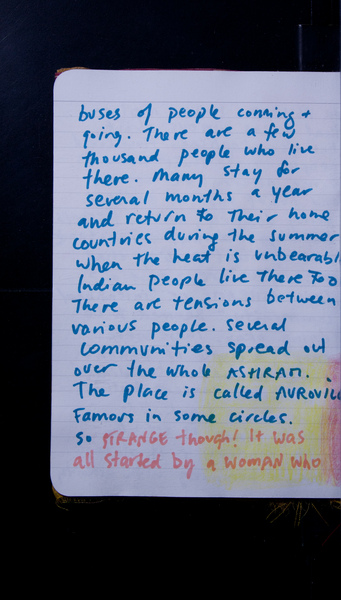 buses of people coming +
going. There are a few
thousand people who live
there. Many stay for
several months a year
and return to their home
countries during the summer
when the heat is unbearabl
Indian people live there too
There are tensions between
various people. Several
communities spread out
over the whole ASHRAM.
The place is called AUROVILL
Famous in some circles.
So STRANGE though! It was
all started by a WOMAN WHO